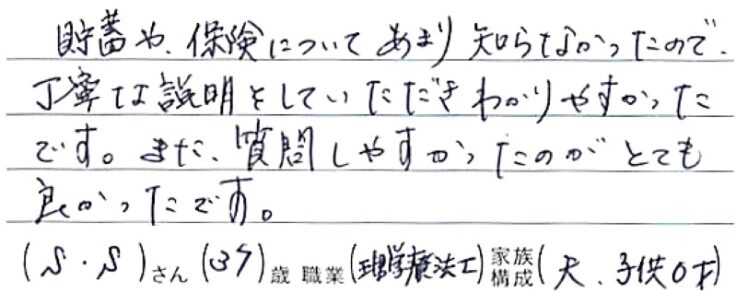 貯蓄や、保険についてあまり知らなかったので、
丁寧な説明をしていただきわかりやすかった
です。また、質問しやすかったのがとても
良かったです。
(S・S)さん (37)歳 職業(理学療法士) 家族構成(夫、子供0才)